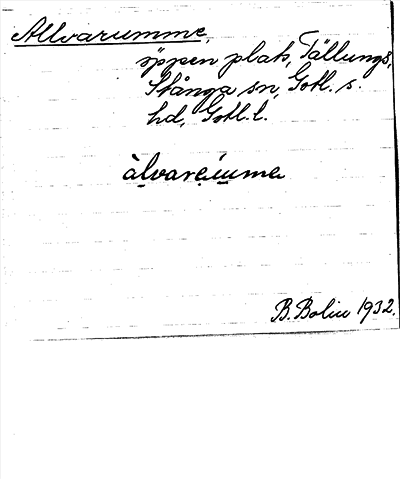 Allvarumme,
öppen plats, Tällungs,
Stånga sn, Gotl. s.
hd, Gotl. l.
B. Bolin 1932.